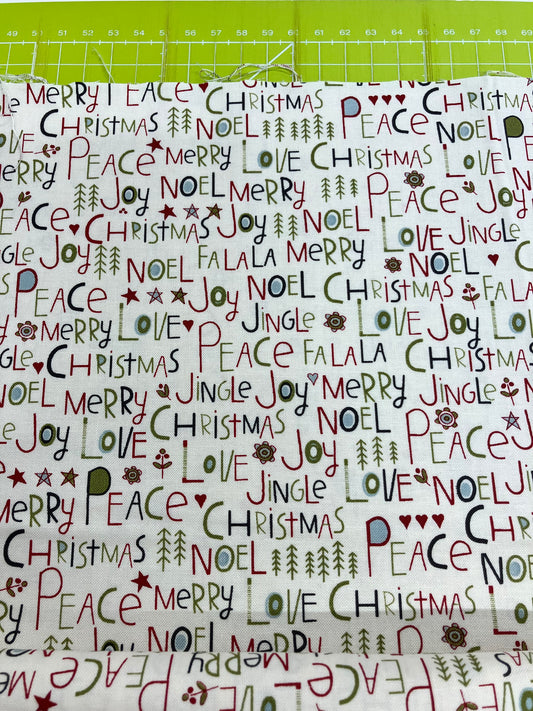 49 50 51 52 53 54 55 56 57 58 59 60 61 62 63 64 65 66 67 68 69
MERRY PEACE CHRISTMAS JINGLE
CHRISTMAS NOEL PEACE CHRISTMAS NOEL
PEACE MERRY LOVE CHRISTMAS
JOY NOEL MERRY PEACE
PEACE CHRISTMAS JOY NOEL LOVE JINGLE
JOY NOEL FALALA MERRY NOEL
PEACE JOY NOEL CHRISTMAS FALALA
MERRY LOVE JINGLE LOVE JOY
CHRISTMAS PEACE FALALA CHRISTMAS
NOEL MERRY JINGLE JOY MERRY JINGLE
JOY LOVE CHRISTMAS NOEL PEACE JOY
LOVE JOY LOVE NOEL
MERRY PEACE CHRISTMAS JINGLE CHRISTMAS
CHRISTMAS NOEL PEACE NOEL
PEACE MERRY LOVE CHRISTMAS LOVE
JOY NOEL MERRY
MERRY PEACE CHRISTMAS JINGLE